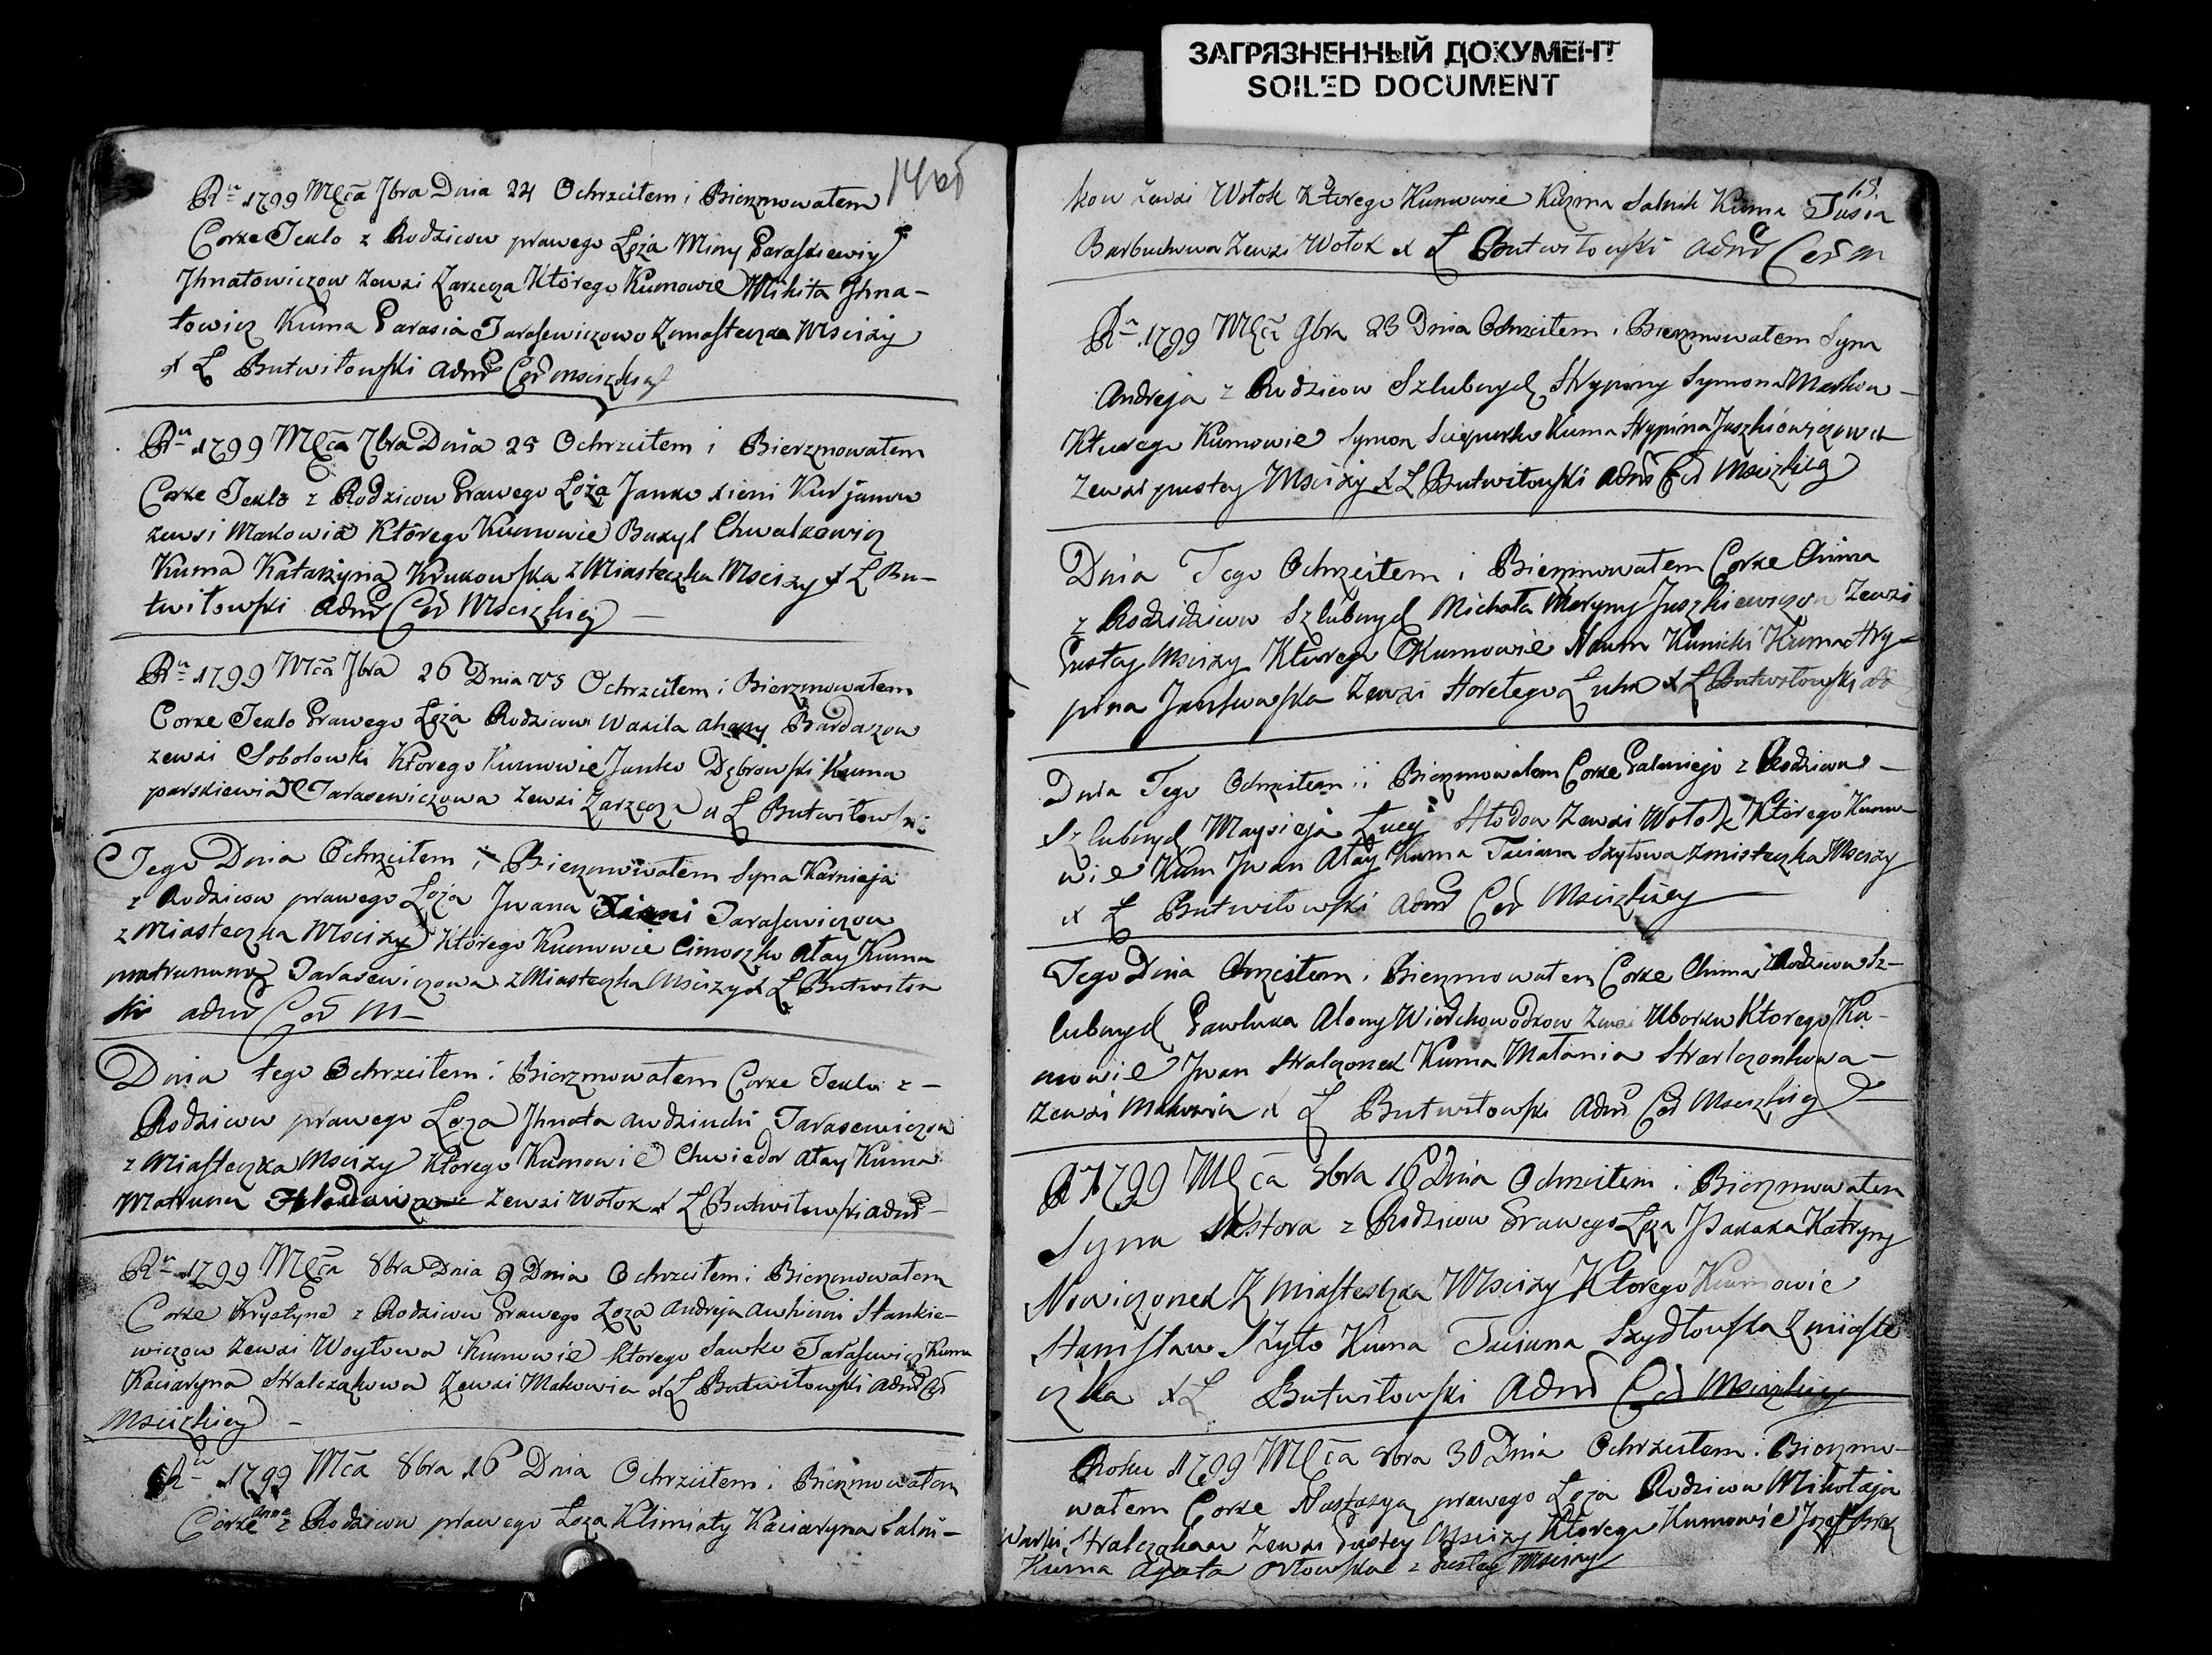 ЗАГРЯЗНЕННЫЙ ДОКУМЕНТ
SOILED DOCUMENT
14об
Ru 1799 Mca 7bra Dnia 24 Ochrzciłem i Bierzmowałem
Corke Teklo z Rodzicow prawego Łoża Miny Paraskiewiy
Jhnatowiczow zewsi Zarzecza Którego Kumowie Mikita Jhna-
towicz Kuma Parasia Tarasewiczowo zmasteczka Msciży
x L Butwiłowski adm Cer Mscizkiey
Ru 1799 Mca 7bra Dnia 25 Ochrzciłem i Bierzmowałem
Corke Teklo z Rodzicow Prawego Łoża Janko xieni Kurjanow
zewsi Makowia Którego Kumowie Bazyl Chwalkowicz
Kuma Katarzyna Krukowska z Miasteczka Msciży x L Bu-
twiłowski adm Cer Mscizkiey
Ru 1799 Mca 7bra 26 Dnia Ochrzciłem i Bierzmowałem
Corke Teklo Prawego Łoża Rodzicow Wasila Bardazow
zewsi Sobolowki Którego Kumowie Janko Dąbrowski Kuma
parskiewia Tarasewiczowa zewsi Zarzecza x L Butwiłowski
Tego Dnia Ochrzciłem i Bierzmowałem Syna Karnieja
z Rodzicow prawego Łoża Jwana Xieni Tarasewiczow
z Miasteczka Msciży Którego Kumowie Cimoszko Ałay Kuma
Tarasewiczowa z Miasteczka Msciży x L Butwiłow
ski adm Cer M-
Dnia tego Ochrzciłem i Bierzmowałem Corke Teklu z-
Rodzicow prawego Łoża Jhnata audziuchi Tarasewiczow
z Miasteczka Msciży Którego Kumowie Chwiedor Ałay Kuma
Matruna zewsi Wołok x L Butwiłowski adm
Ru 1799 Mca 8bra Dnia 9 Dnia Ochrzciłem i Bierzmowałem
Corke Krystyne z Rodzicow Prawego Łoża Andreja Stankie-
wiczow zewsi Woytowa Kumowie którego Sawko Tarasewicz Kuma
Kaciaryna Stralczakowa zewsi Makowia x L Butwiłowski adm Cer
Mscizkiey -
Ru 1799 Mca 8bra 16 Dnia Ochrzciłem i Bierzmowałem
Corke Anne z Rodzicow prawego Łoża Klimiaty Kaciaryna Salni-
15
kow zewsi Wołok Którego Kumowie Kuzma Salnik Kuma Tusia
Barbuchowa zewsi Wołok x L Butwiłowski adm Cer M
Ru 1799 Mca 9bra 23 Dnia Ochrzciłem i Bierzmowałem Syna
Andreja z Rodzicow Szlubnych Hrypiny Symona
Kturego Kumowie Symon Kuma Hrypina Juszkiewiczowa
zewsi pustey Msciży x L Butwiłowski adm Cer Mscizkiey
Dnia Tego Ochrzciłem i Bierzmowałem Corke Anna
z Rodzidziow Szlubnych Michała Maryny Juszkiewiczow zewsi
Pustey Msciży Kturego Kumowie Naum Kunicki Kuma Hry-
pina zewsi Horełego Łuha x L Butwiłowski ad
Dnia Tego Ochrzciłem i Bierzmowałem Corke z Rodzicow-
Szlubnych Maysieja Łucyi Hłodow zewsi Wołok Którego Kumo-
wie Kum Jwan Ałay Kuma Taciana Szytowa zmisteczka Msciży
x L Butwiłowski adm Cer Mscizkiey
Tego Dnia Chrzciłem i Bierzmowałem Corke Anna z Rodzicow Sz-
lubnych Pawluka Alony Wierchowodkow zewsi Uborku Którego Ku-
mowie Jwan Stralczonek Kuma Małania Stralczonkowa-
zewsi Makowia x L Butwiłowski adm Cer Mscizkiey
Ru 1799 Mca 8bra 16 Dnia Ochrzciłem i Bierzmowałem
Syna Nestora z Rodzicow Prawego Łoża Jsakaka Katryny
Nowiczonek z miasteczka Msciży Którego Kumowie
Stanisław Szyło Kuma Taciana Szydłowska z miaste
czka x L Butwiłowski adm Cer Mscizkiey
Roku 1799 Mca 8bra 30 Dnia Ochrzciłem i Bierzmo-
wałem Corke Nastazya prawego Łoża Rodzicow Mikołaja
Warki Stralczakow zewsi Pustey Msciży Którego Kumowie Jozef
Kuma Agata Orłowska z Pustey Msciży